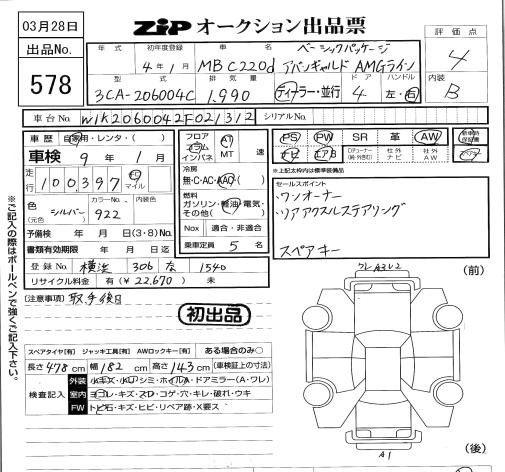 03月28日 ZiP オークション出品票
出品No. 578
年式 初年度登録 車名 評価点
4年1月 MB C220d ベーシックパッケージ アバンギャルド AMGライン 4
型式 排気量 ドア ハンドル 内装
3CA-206004C 1,990 ディーラー・並行 4 左・右 B
車台No. W1K2060042F021312 シリアルNo.
車歴 自家用・レンタ・( )
車検 9年1月
走行 100,397 km マイル
色 (元色) シルバー カラーNo. 922 内装色
予備検 年 月 日(3・8)Mo.
書類有効期限 年 月 日
登録No. 横浜 306 な 1540
リサイクル料金 有(¥22,670) 未
フロア コラム インパネ AT MT 速
冷房 無・C・AC・AAC
燃料 ガソリン・軽油・電気・その他( )
Nox 適合・非適合
乗車定員 5名
PS PW SR 革 AW 新車時保証書
ナビ エアB TVチューナー(純・外含む) 社外ナビ 社外AW スペアキー
※上記太枠内は標準装備品
セールスポイント
・ワンオーナー
・リアアクスルステアリング
スペアキー
(注意事項) 取手後日
初出品
スペアタイヤ[有] ジャッキ工具[有] AWロックキー[有] ある場合のみ○
長さ478cm 幅182cm 高さ143cm (車検証上の寸法)
検査記入
外装 小キズ・小U シミ・ホイルA・ドアミラー(A・ワレ)
室内 ヨゴレ・キズ・スD・コゲ・穴・キレ・破れ・ウキ
FW トビ石・キズ・ヒビ・リペア跡・X要ス
ワレ A3 U2 (前)
A1 (後)
※ご記入の際はボールペンで強くご記入下さい。